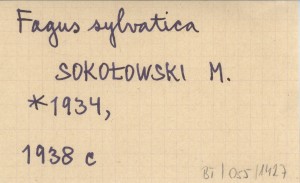 Fagus sylvatica
SOKOŁOWSKI M.
*1934,
1938 c
BT/Oss/1427